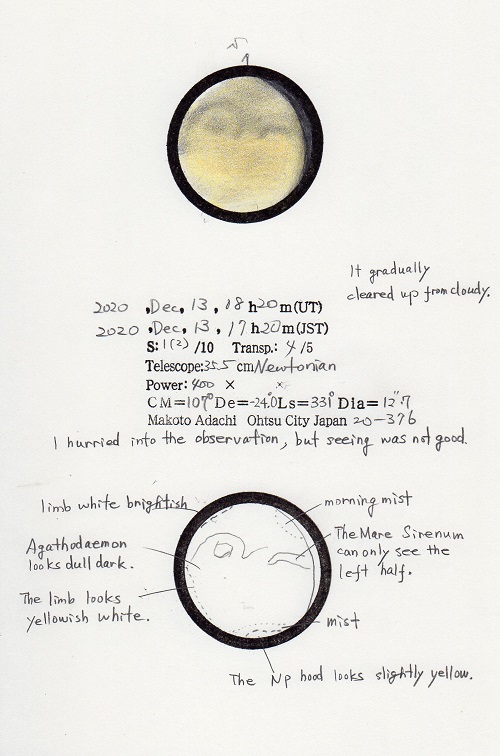 S
It gradually
cleared up from cloudy.
2020 ,Dec, 13, 18 h20m(UT)
2020 ,Dec, 13, 17h20m(JST)
S: 1(2) /10 Transp.: 4/5
Telescope:35.5 cm Newtonian
Power: 400 ×
CM=107° De=-24.0 Ls=331° Dia=12".7
Makoto Adachi Ohtsu City Japan 20-376
I hurried into the observation, but seeing was not good.
limb white brightish
morning mist
Agathodaemon
looks dull dark.
The Mare Sirenum
can only see the
left half.
The limb looks
yellowish white.
mist
The Np hood looks slightly yellow.